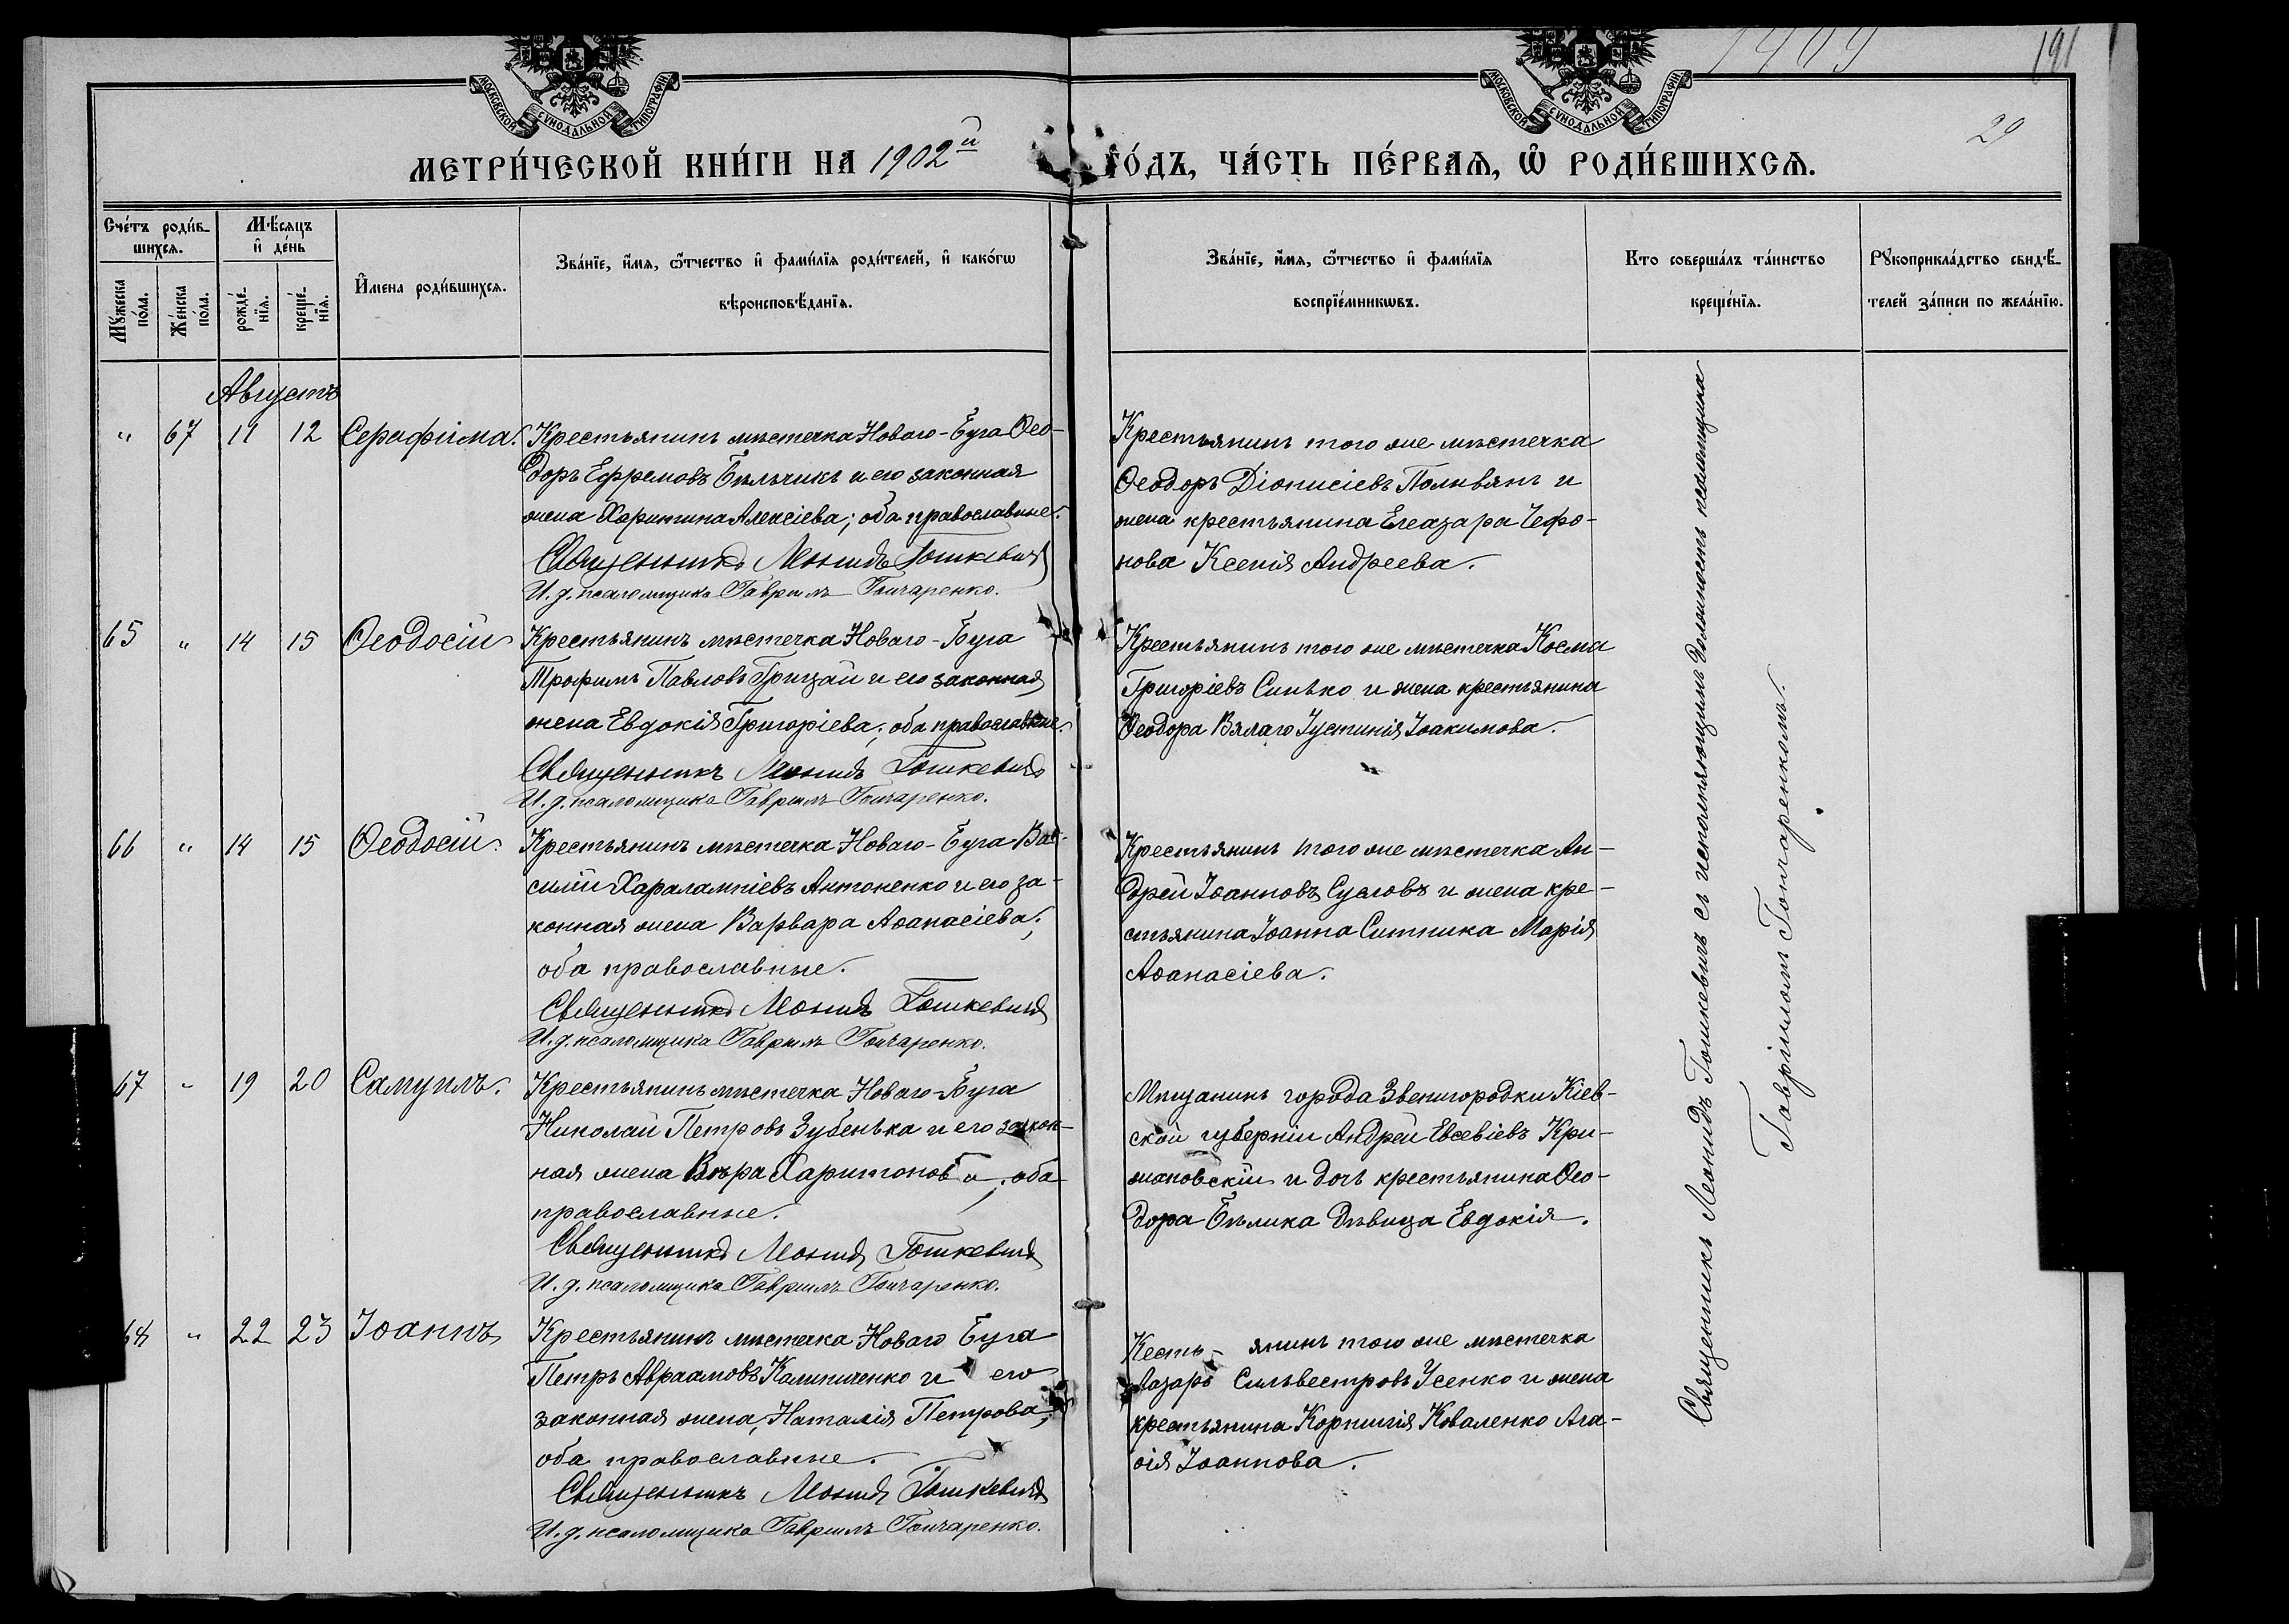 1909
191
29
МОСКОВСКОЙ СѴНОДАЛЬНОЙ ТИПОГРАФІИ
МОСКОВСКОЙ СѴНОДАЛЬНОЙ ТИПОГРАФІИ
МЕТРИ́ЧЕСКОЙ КНИ́ГИ НА 1902й ГО́ДЪ, ЧА́СТЬ ПЕ́РВАѦ, Ѡ РОДИ́ВШИХСѦ.
Сче́тъ роди́в-
шихсѧ.
Мѣ́сѧцъ
и҆ де́нь
Мꙋ́жеска
по́ла.
Же́нска
по́ла.
рожде́-
нїѧ.
креще́-
нїѧ.
И҆́мена роди́вшихсѧ.
Зва́нїе, и҆́мѧ, ѻ҆́тчество и҆ фами́лїѧ роди́телей, и҆ како́гѡ
вѣроисповѣ́данїѧ.
Зва́нїе, и҆́мѧ, ѻ҆́тчество и҆ фами́лїѧ
воспрїе́мникѡвъ.
Кто соверша́лъ та́инство
креще́нїѧ.
Рꙋкоприкла́дство свидѣ́-
телей за́писи по жела́нїю.
Августъ
" 67 11 12 Серафима. Крестьянинъ мѣстечка Новаго-Буга Ѳео-
доръ Ефремовъ Бѣльчикъ и его законная
жена Харитина Алексіева; оба православные.
Священникъ Леонидъ Гошкевичъ
И. д. псаломщика Гавриилъ Гончаренко.
Крестьянинъ того же мѣстечка
Ѳеодоръ Діонисіевъ Поливянъ и
жена крестьянина Елеазара Чефо-
нова Ксенія Андреева.
65 " 14 15 Ѳеодосій Крестьянинъ мѣстечка Новаго-Буга
Трофимъ Павловъ Грицай и его законная
жена Евдокія Григоріева; оба православные.
Священникъ Леонидъ Гошкевичъ
И. д. псаломщика Гавриилъ Гончаренко.
Крестьянинъ того же мѣстечка Косма
Григоріевъ Синько и жена крестьянина
Ѳеодора Вялаго Іустинія Іоакимова.
66 " 14 15 Ѳеодосій. Крестьянинъ мѣстечка Новаго-Буга Ва-
силій Харалампіевъ Антоненко и его за-
конная жена Варвара Аѳанасіева;
оба православные.
Священникъ Леонидъ Гошкевичъ
И. д. псаломщика Гавриилъ Гончаренко.
Крестьянинъ того же мѣстечка Ан-
дрей Іоанновъ Сусловъ и жена кре-
стьянина Іоанна Ситника Марія
Аѳанасіева.
67 " 19 20 Самуилъ. Крестьянинъ мѣстечка Новаго-Буга
Николай Петровъ Зубенька и его закон-
ная жена Вѣра Харитонова; оба
православные.
Священникъ Леонидъ Гошкевичъ
И. д. псаломщика Гавриилъ Гончаренко.
Мѣщанинъ города Звенигородки Кіев-
ской губерніи Андрей Евсевіевъ Кри-
жановскій и дочь крестьянина Ѳео-
дора Бѣлика дѣвица Евдокія.
68 " 22 23 Іоаннъ Крестьянинъ мѣстечка Новаго Буга
Петръ Авраамовъ Калиниченко и его
законная жена, Наталія Петрова;
оба православные.
Священникъ Леонидъ Гошкевичъ
И. д. псаломщика Гавриилъ Гончаренко.
Кесть-янинъ того же мѣстечка
Лазарь Сильвестровъ Усенко и жена
крестьянина Корнилія Коваленко Ага-
ѳія Іоаннова.
Священникъ Леонидъ Гошкевичъ съ исполняющимъ должность псаломщика
Гавріиломъ Гончаренкомъ.